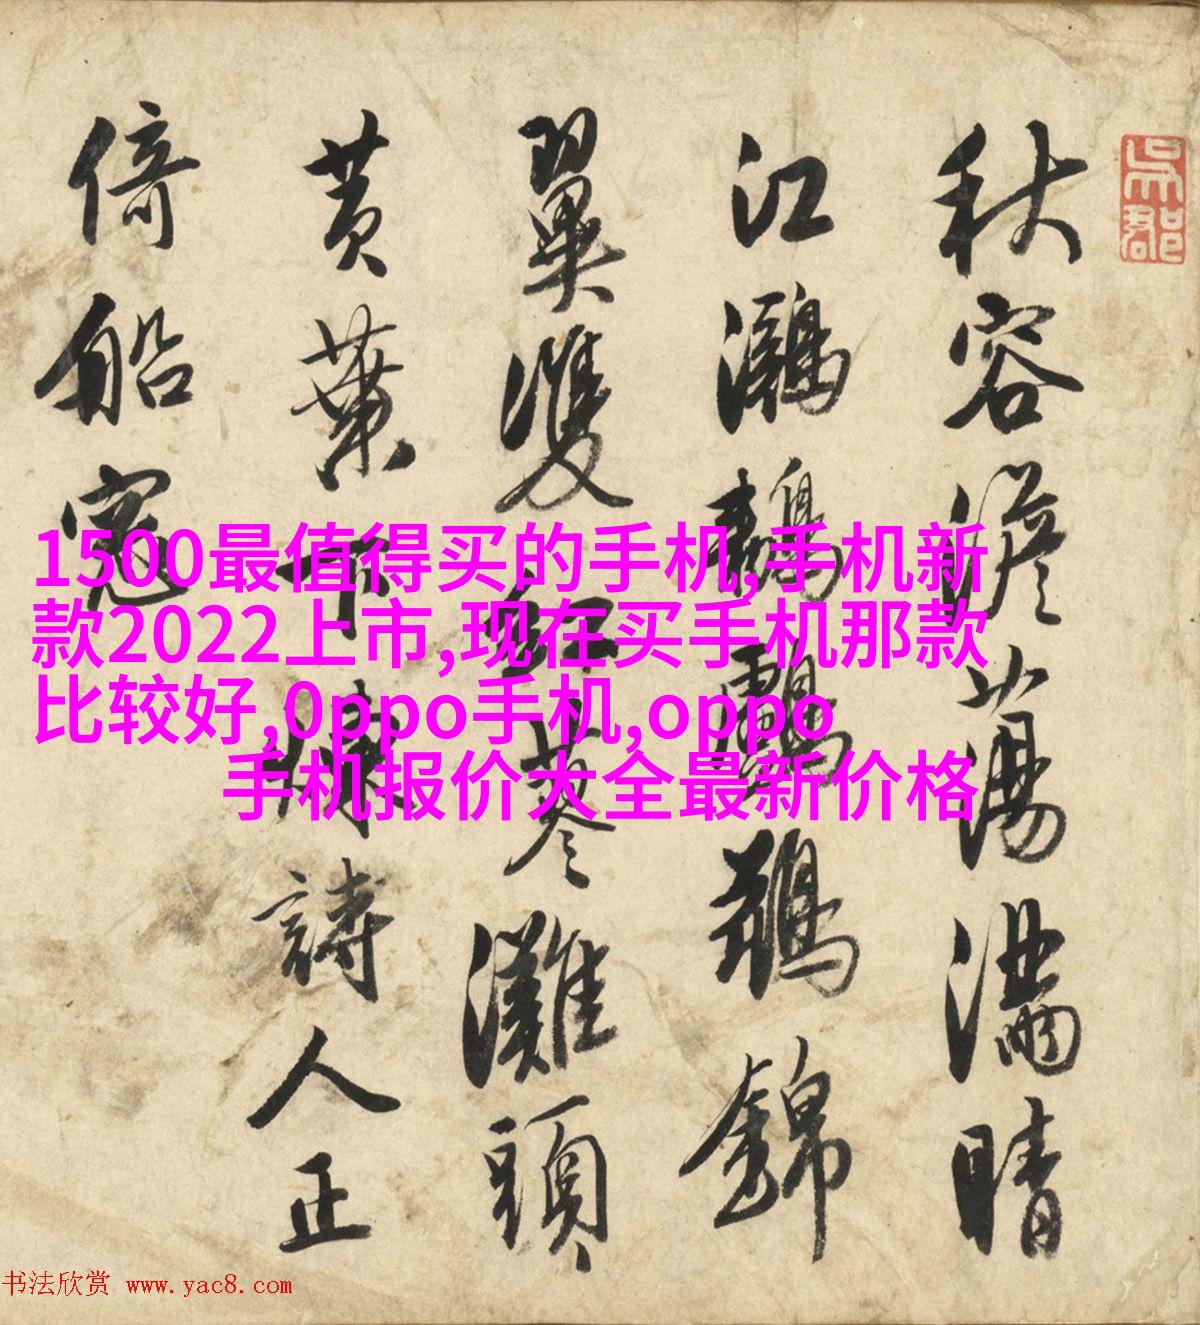 吳郡
秋容澹蕩滿晴
江鸂鶒鶿錦
翼雙紅蓼灘頭
黃葉下詩人正
倚船窓
1500最值得买的手机,手机新
款2022上市,现在买手机那款
比较好,0ppo手机,oppo
手机报价大全最新价格
书法欣赏 www.yac8.com